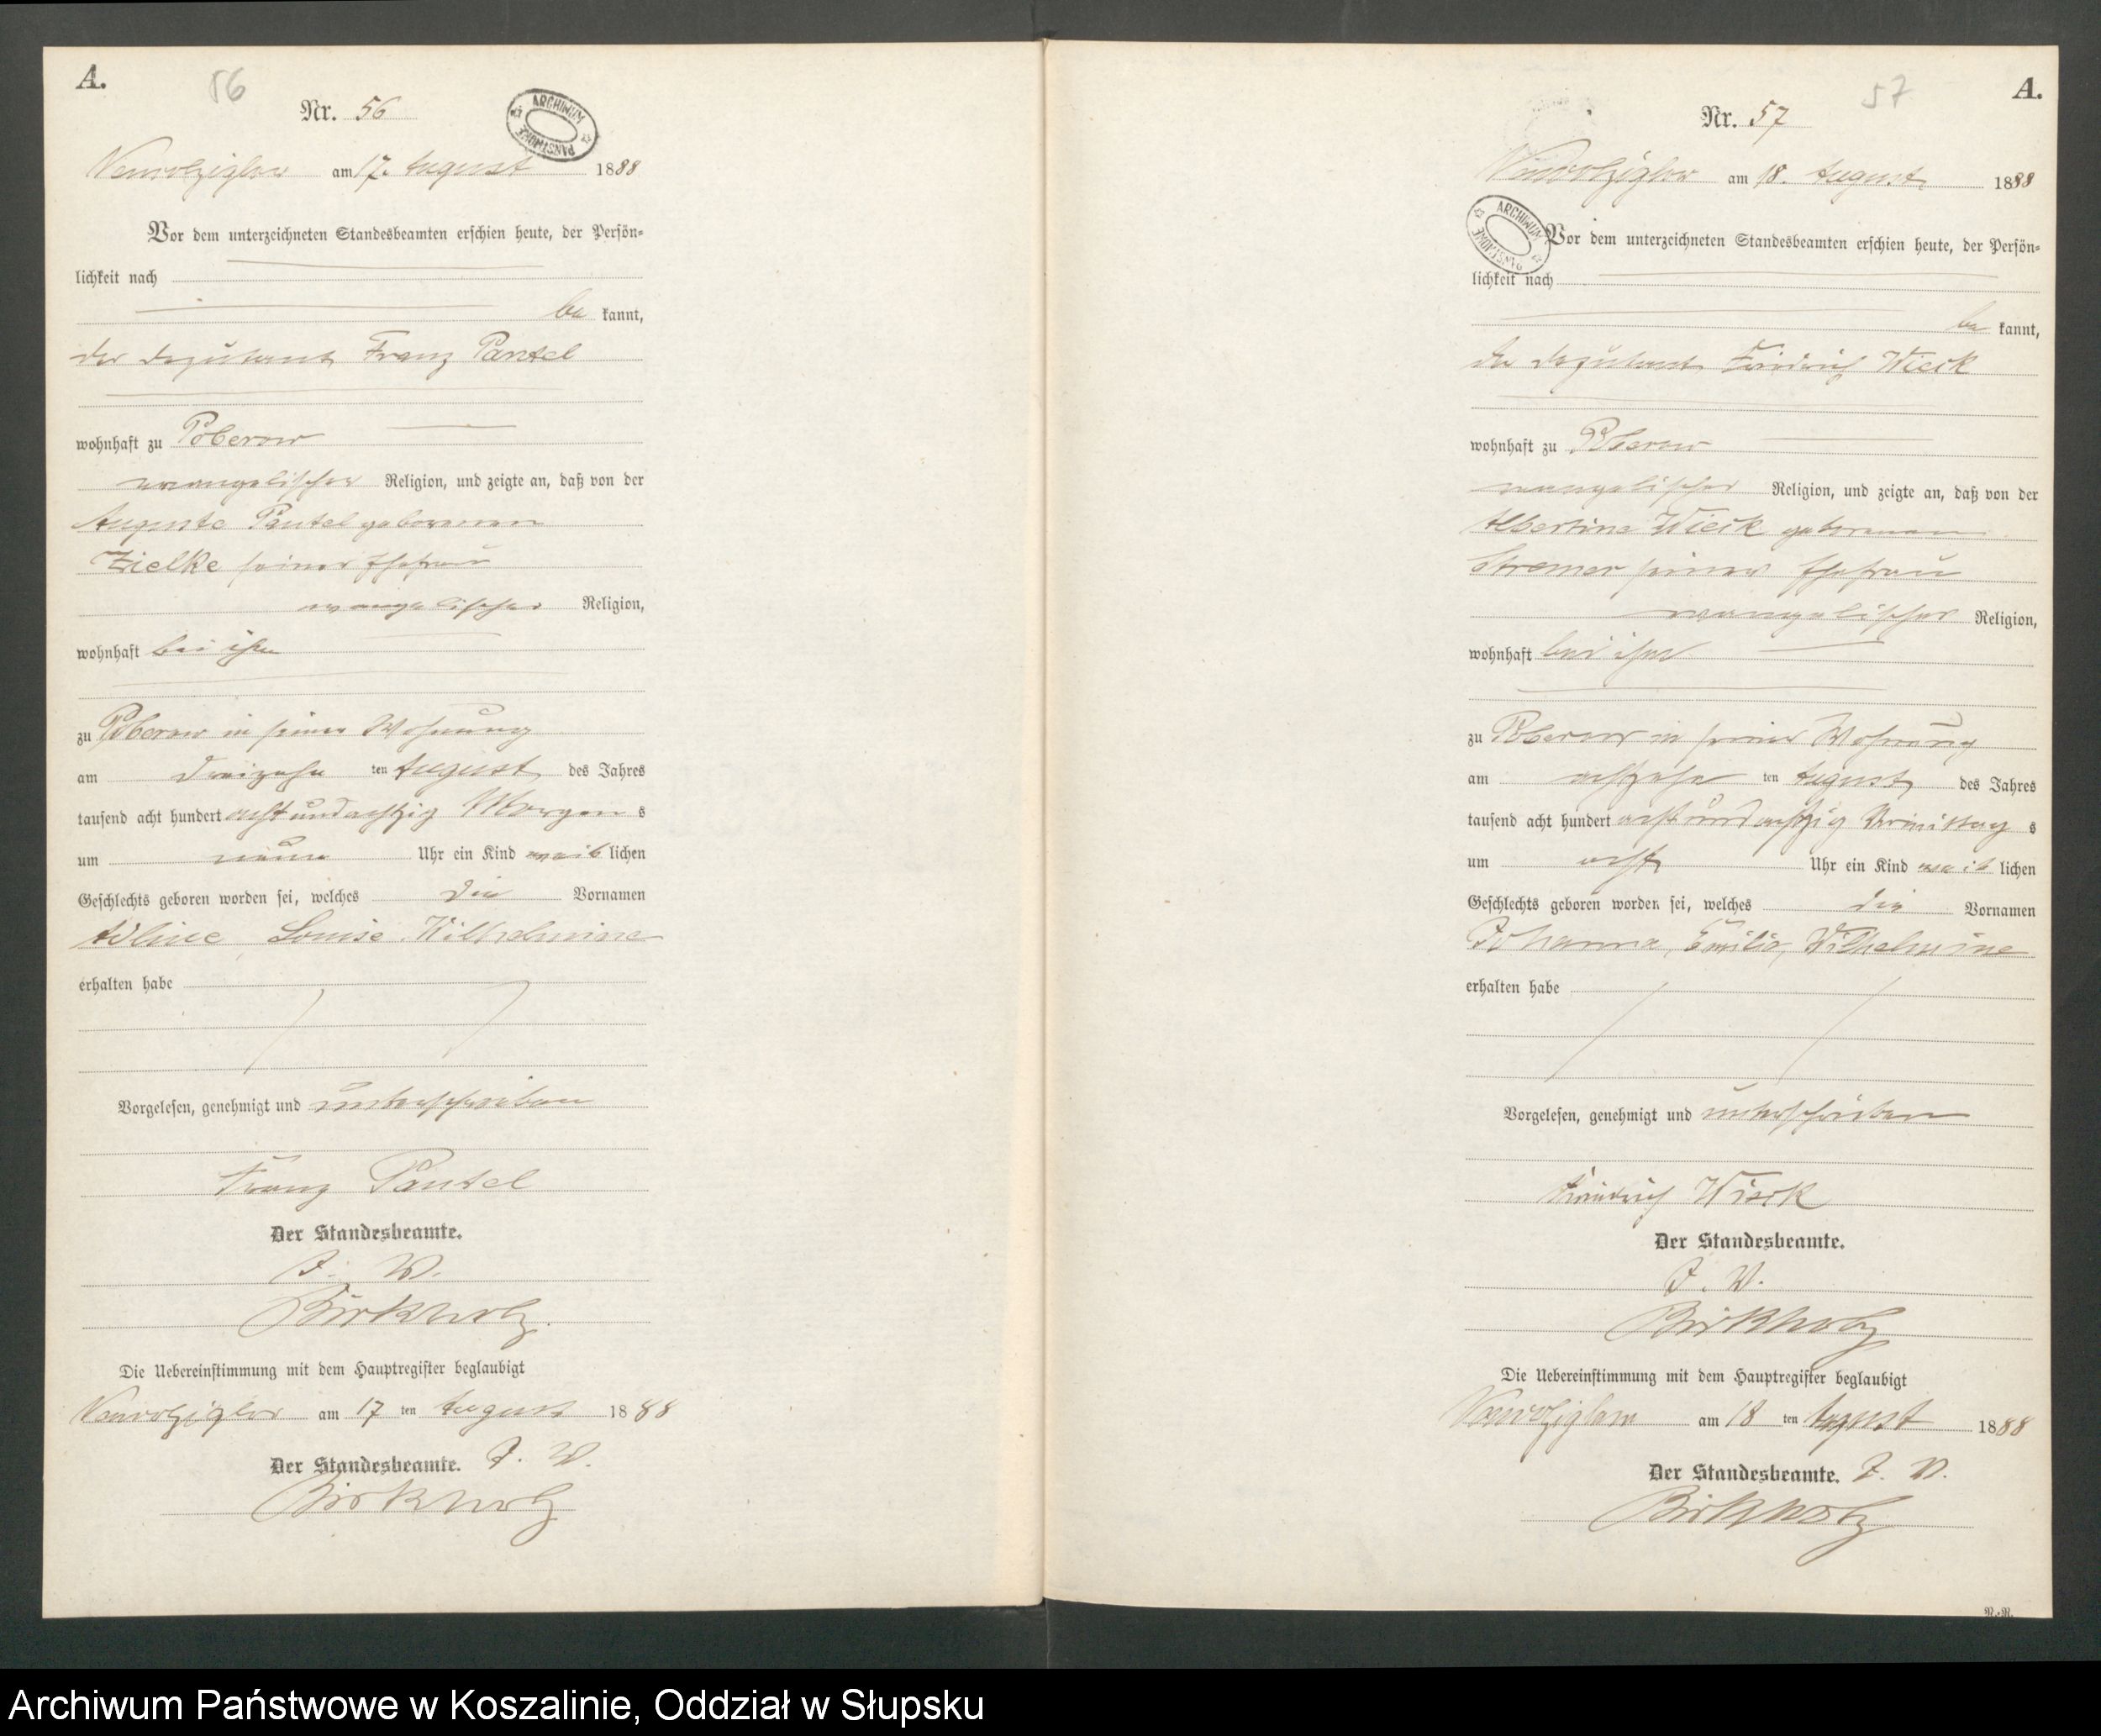 A.
56
Nr. 56
ARCHIWUM PAŃSTWOWE
Neuwolziglow am 17. August 1888
Vor dem unterzeichneten Standesbeamten erschien heute, der Persön-
lichkeit nach
be kannt,
der Deputant Franz Pantel
wohnhaft zu Poberow
evangelischer Religion, und zeigte an, daß von der
Auguste Pantel geborenen
Zielke seiner Ehefrau
evangelischer Religion,
wohnhaft bei ihm
zu Poberow in seiner Wohnung
am dreizehn ten August des Jahres
tausend acht hundert acht und achtzig Morgen s
um neun Uhr ein Kind weib lichen
Geschlechts geboren worden sei, welches die Vornamen
Adline, Louise Wilhelmine
erhalten habe
Vorgelesen, genehmigt und unterschrieben
Franz Pantel
Der Standesbeamte.
J. V.
Birkholz.
Die Uebereinstimmung mit dem Hauptregister beglaubigt
Neuwolziglow am 17 ten August 1888
Der Standesbeamte. J. V.
Birkholz
57
A.
Nr. 57
Neuwolziglow am 18. August 1888
ARCHIWUM PAŃSTWOWE
Vor dem unterzeichneten Standesbeamten erschien heute, der Persön-
lichkeit nach
be kannt,
der Deputant Friedrich Wieck
wohnhaft zu Poberow
evangelischer Religion, und zeigte an, daß von der
Albertine Wieck geborenen
Stremer seiner Ehefrau
evangelischer Religion,
wohnhaft bei ihm
zu Poberow in seiner Wohnung
am achtzehn ten August des Jahres
tausend acht hundert acht und achtzig Vormittag s
um acht Uhr ein Kind weib lichen
Geschlechts geboren worden sei, welches die Vornamen
Johanna, Emilie, Wilhelmine
erhalten habe
Vorgelesen, genehmigt und unterschrieben
Friedrich Wieck
Der Standesbeamte.
J. V.
Birkholz
Die Uebereinstimmung mit dem Hauptregister beglaubigt
Neuwolziglow am 18 ten August 1888
Der Standesbeamte. J. V.
Birkholz
Archiwum Państwowe w Koszalinie, Oddział w Słupsku